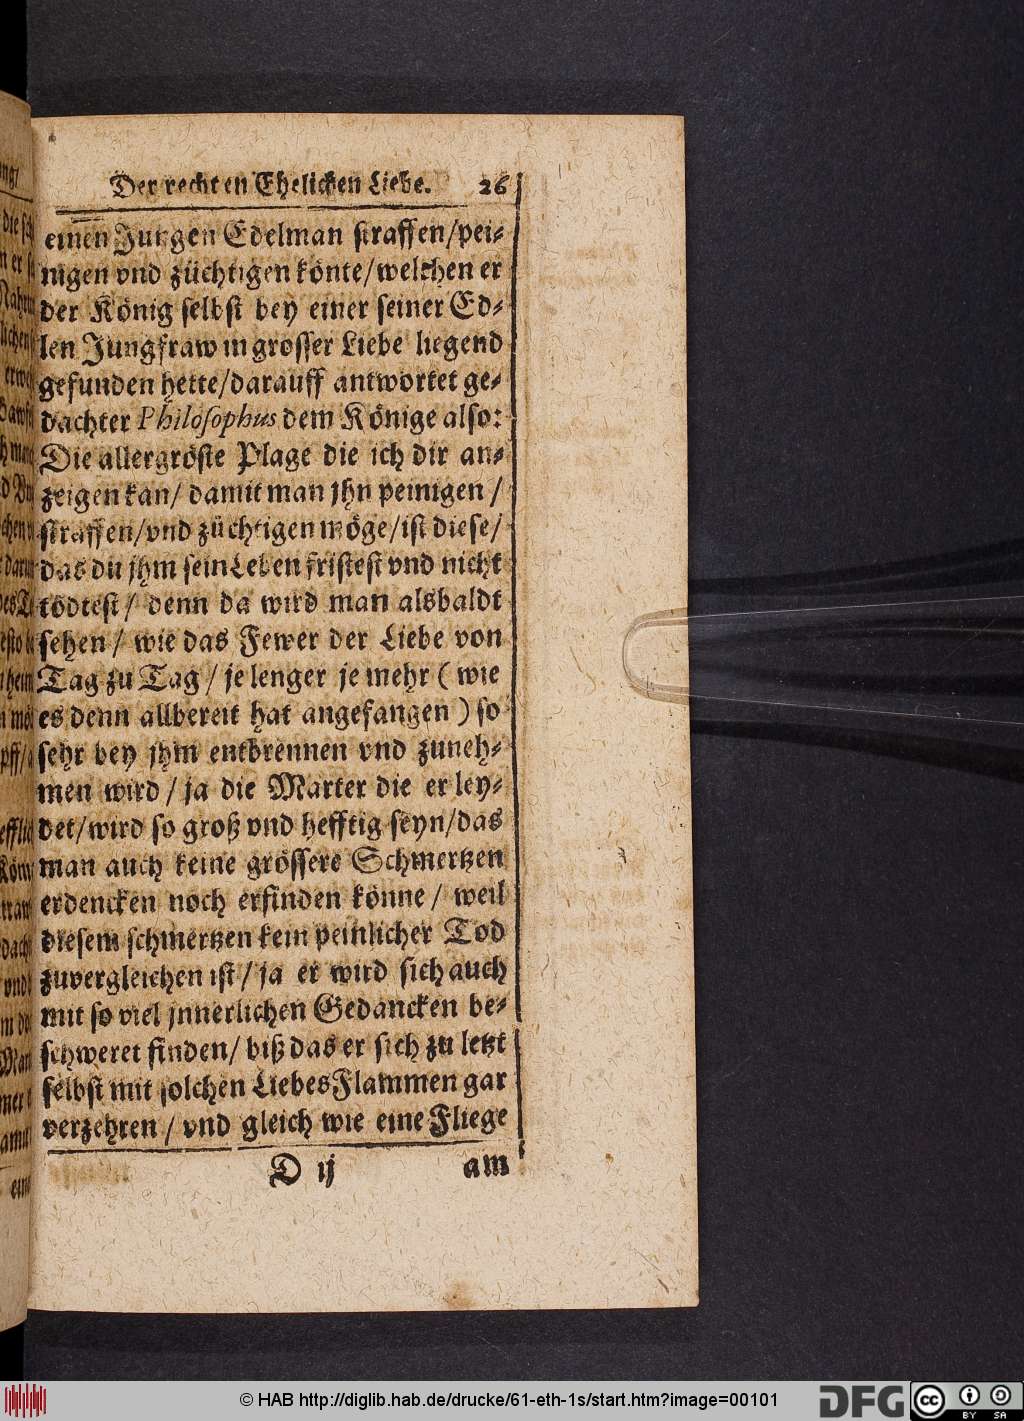 Der rechten Ehelichen Liebe. 26
einen Jungen Edelman straffen/pei-
nigen vnd züchtigen könte/welchen er
der König selbst bey einer seiner Ed-
len Jungfraw in grosser Liebe liegend
gefunden hette/darauff antwortet ge-
dachter Philosophus dem Könige also:
Die allergröste Plage die ich dir an-
zeigen kan/ damit man jhn peinigen /
straffen/vnd züchtigen möge/ist diese/
das du jhm sein Leben fristest vnd nicht
tödtest/ denn da wird man alsbaldt
sehen/ wie das Fewer der Liebe von
Tag zu Tag/ je lenger je mehr (wie
es denn allbereit hat angefangen) so
sehr bey jhm entbrennen vnd zuneh-
men wird/ ja die Marter die er ley-
det/wird so groß vnd hefftig seyn/das
man auch keine grössere Schmertzen
erdencken noch erfinden könne/ weil
diesem schmertzen kein peinlicher Tod
zuvergleichen ist/ ja er wird sich auch
mit so viel jnnerlichen Gedancken be-
schweret finden/ biß das er sich zu letzt
selbst mit solchen LiebesFlammen gar
verzehren/ vnd gleich wie eine Fliege
D ij am
© HAB http://diglib.hab.de/drucke/61-eth-1s/start.htm?image=00101 DFG cc BY SA